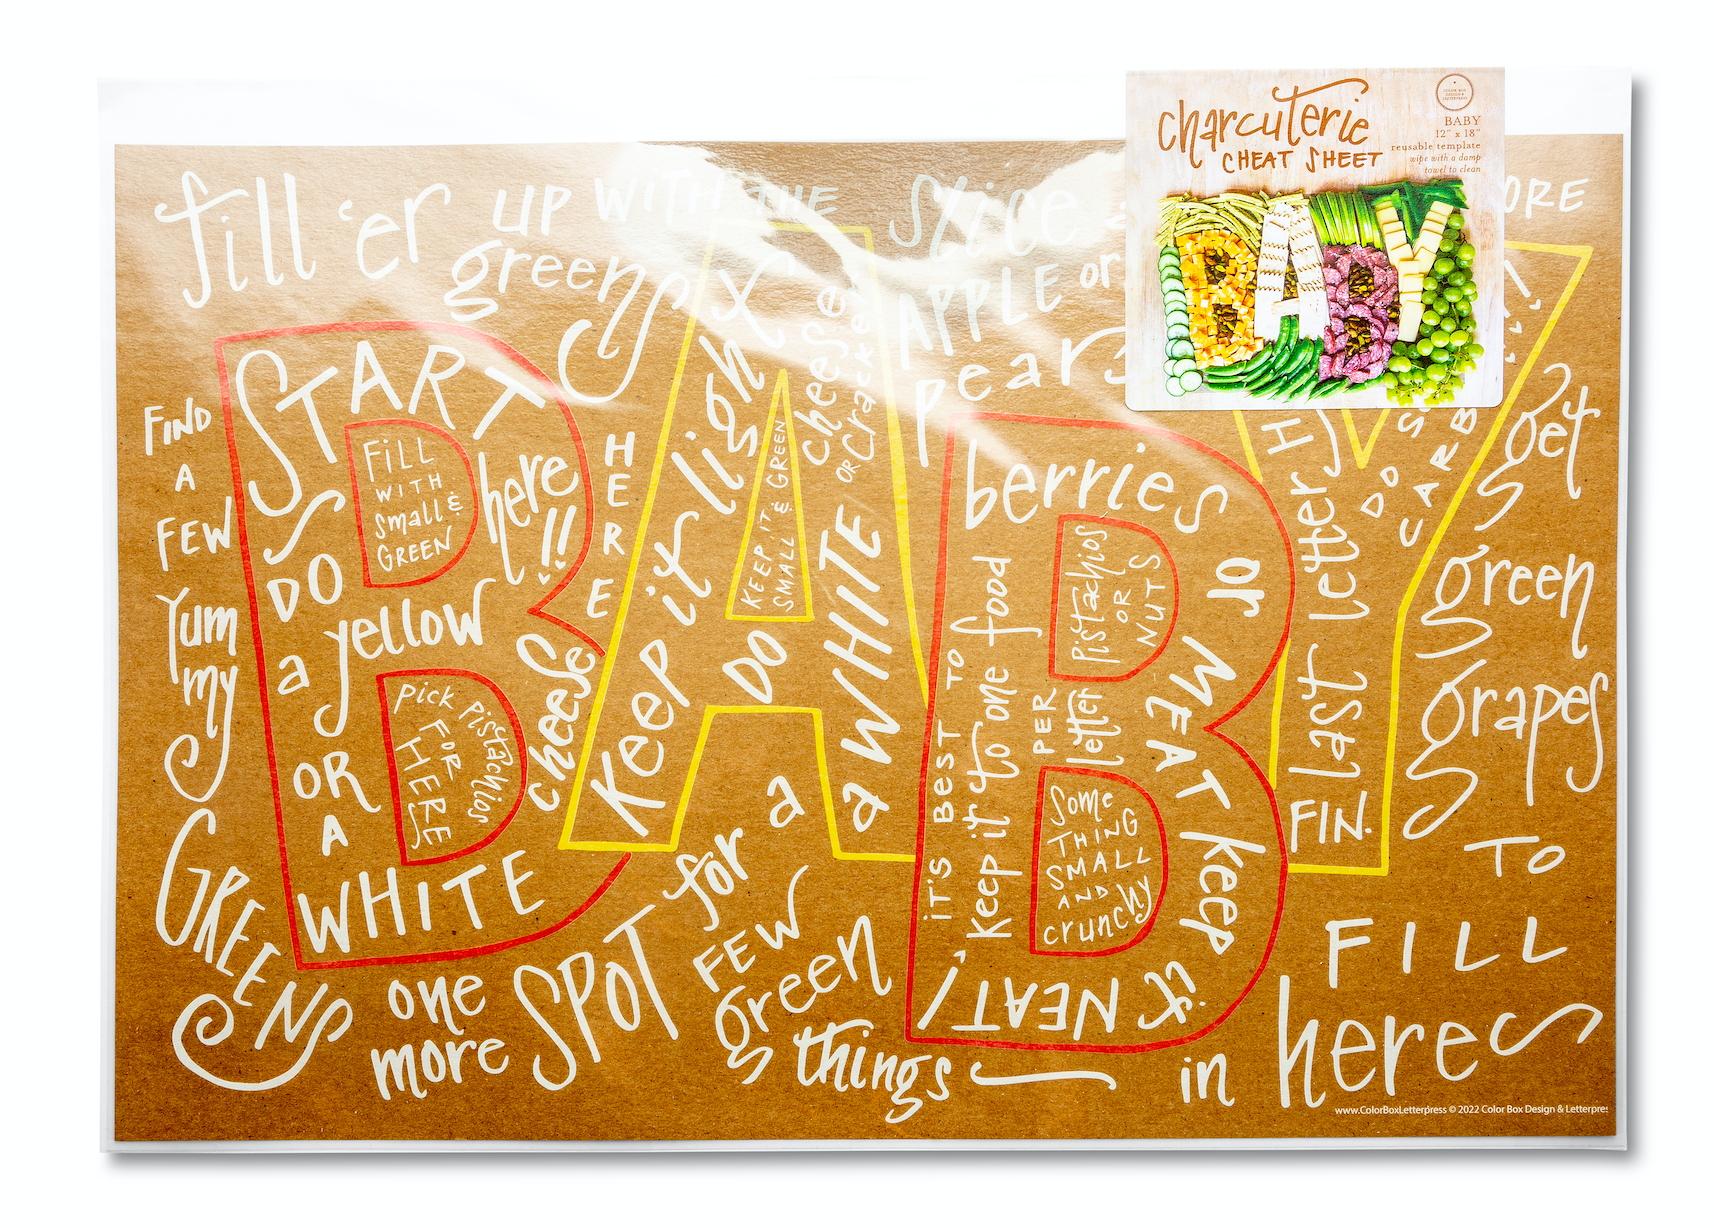 charcuterie
CHEAT SHEET
COLOR BOX
DESIGN &
LETTERPRESS
BABY
12" x 18"
reusable template
wipe with a damp
towel to clean
fill 'er UP WITH THE
greens
slice
APPLE or
pears
ORE
FIND
A
FEW
Yum
my
GREENS
HERE
START
here!!
DO
a yellow
OR
A
WHITE
cheese
FiLL
WITH
small &
GREEN
Pick Pistachios
FOR
HERE
Keep it light
DO
a WHITE
cheese
OR cracker
KEEP IT
SMALL & GREEN
berries or MEAT keep it NEAT!
IT'S BEST TO
Keep it to one food
PER
letter
Pistachios
OR
NUTS
Some
THING
SMALL
AND
crunchy
last letter
DO
CARB
FIN.
get
green
grapes
TO
FILL
in here
one
more SPOT for a
FEW
green
things
www.ColorBoxLetterpress © 2022 Color Box Design & Letterpres